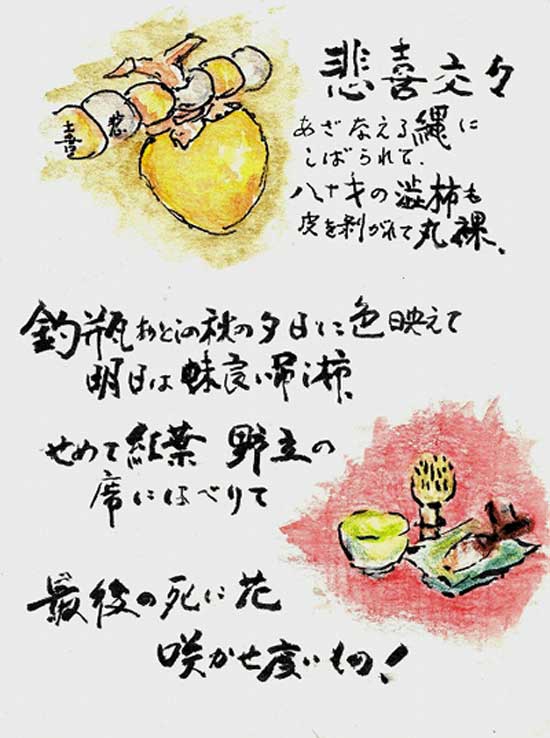 悲喜交々
あざなえる縄に
しばられて、
八十才の渋柿も
皮を剥がれて丸裸、
喜 悲
釣瓶おとしの秋の夕日に色映えて
明日は味良い吊し柿、
せめて紅葉 野立の
席にはべりて
最後の死に花
咲かせ度いもの!